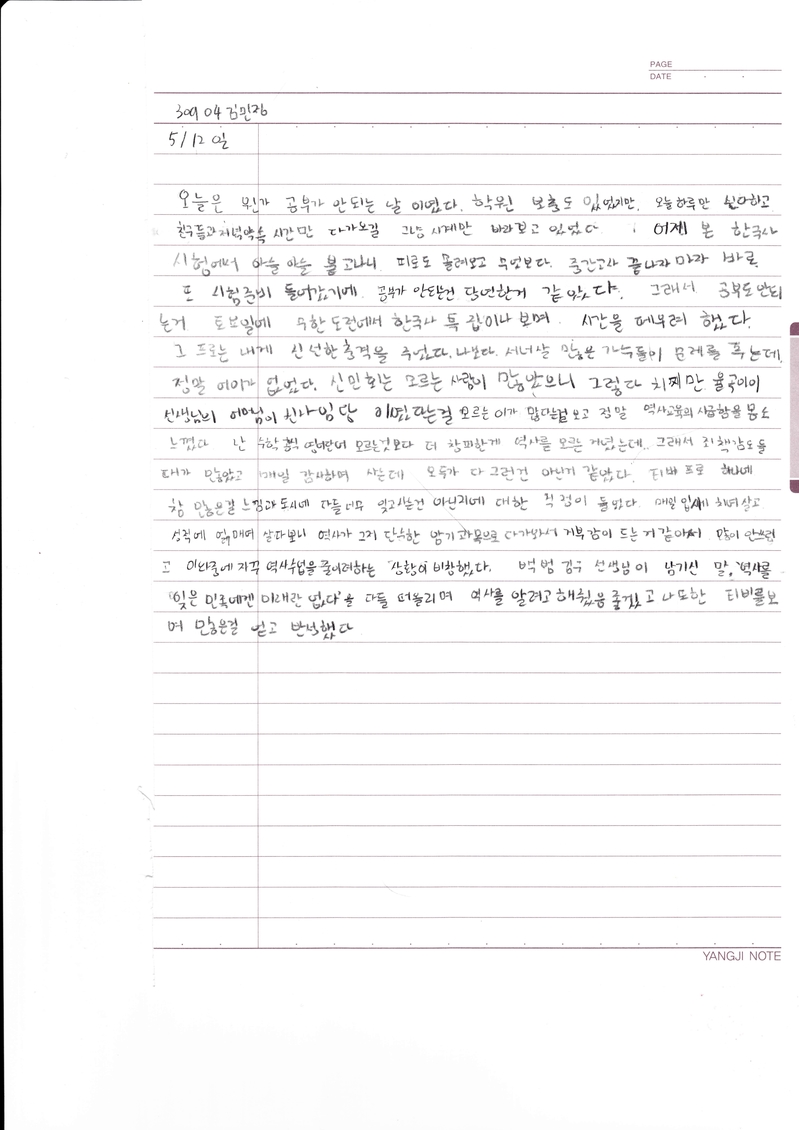 PAGE
DATE
30904 김민정
5/12 일
오늘은 뭔가 공부가 안되는 날 이였다. 학원 보충도 있었지만, 오늘하루만 싶어하고
친구들과 저녁약속 시간만 다가오길 그냥 시계만 바라보고 있었다. 어제 본 한국사
시험에서 아슬아슬 불고나니 피로도 몰려오고 무엇보다. 중간고사 끝나자 마자 바로
또 시험준비 들어갔기에 공부가 안되는건 당연한거 같았다. 그래서 공부도 안되
는거 토요일에 무한도전에서 한국사 특집이나 보며 시간을 때우려 했다.
그 프로는 내게 신선한 충격을 주었다. 나보다. 서너살 많은 가수들이 문제를 푸는데,
정말 어이가 없었다. 신민회는 모르는 사람이 많았으니 그렇다 치지만 율곡이이
선생님의 어머님이 신사임당 이였다는걸 모르는 이가 많다는걸 보고 정말 역사교육의 시급함을 몸소
느꼈다 난 수학 공식 영어단어 모르는것보다 더 창피한게 역사를 모르는 거였는데.. 그래서 죄책감도 들
많았고 매일 감사하며 사는데 모두가 다 그런건 아닌거 같았다. 티비 프로 하나에
참 많은걸 느낌과 도시에 다들 너무 잊고 사는건 아닌지에 대한 걱정이 들었다. 매일 입시에 치여 살고
성적에 얽매여 살다보니 역사가 그저 단순한 암기과목으로 다가와서 거부감이 드는거 같아서 많이 안쓰럽
고 이와중에 자꾸 역사수업을 줄이려하는 상황이 비참했다. 백범 김구 선생님이 남기신 말, '역사를
잊은 민족에겐 미래란 없다'을 다들 떠올리며 역사를 알려고 해줬음 좋겠고 나또한 티비를보
며 많은걸 얻고 반성했다
YANGJI NOTE